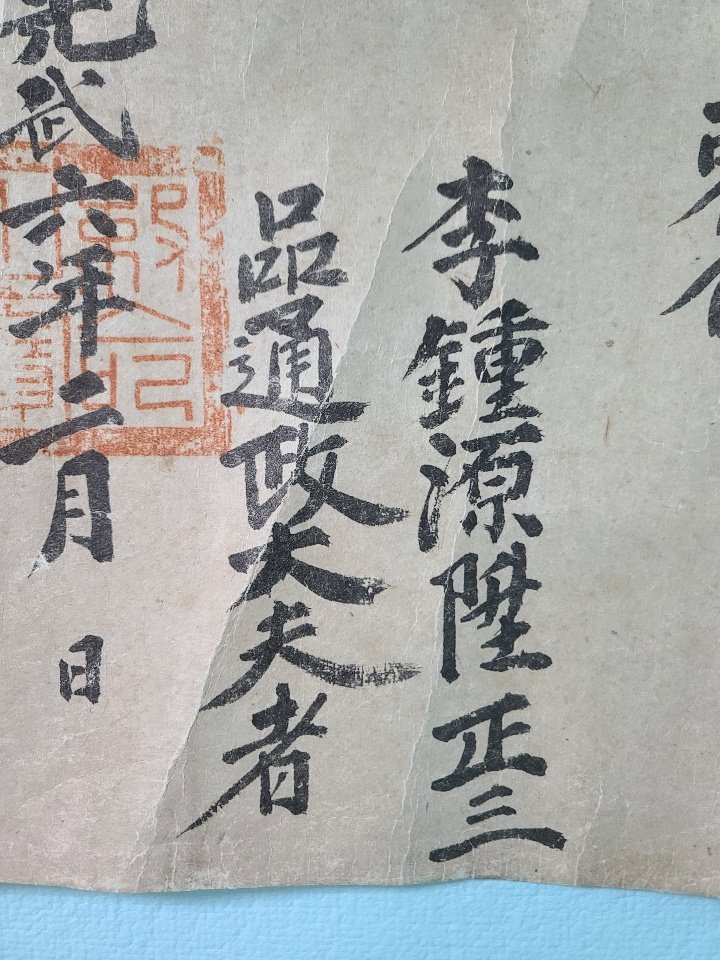 李鍾源陞正三
品通政大夫者
光武六年二月 日